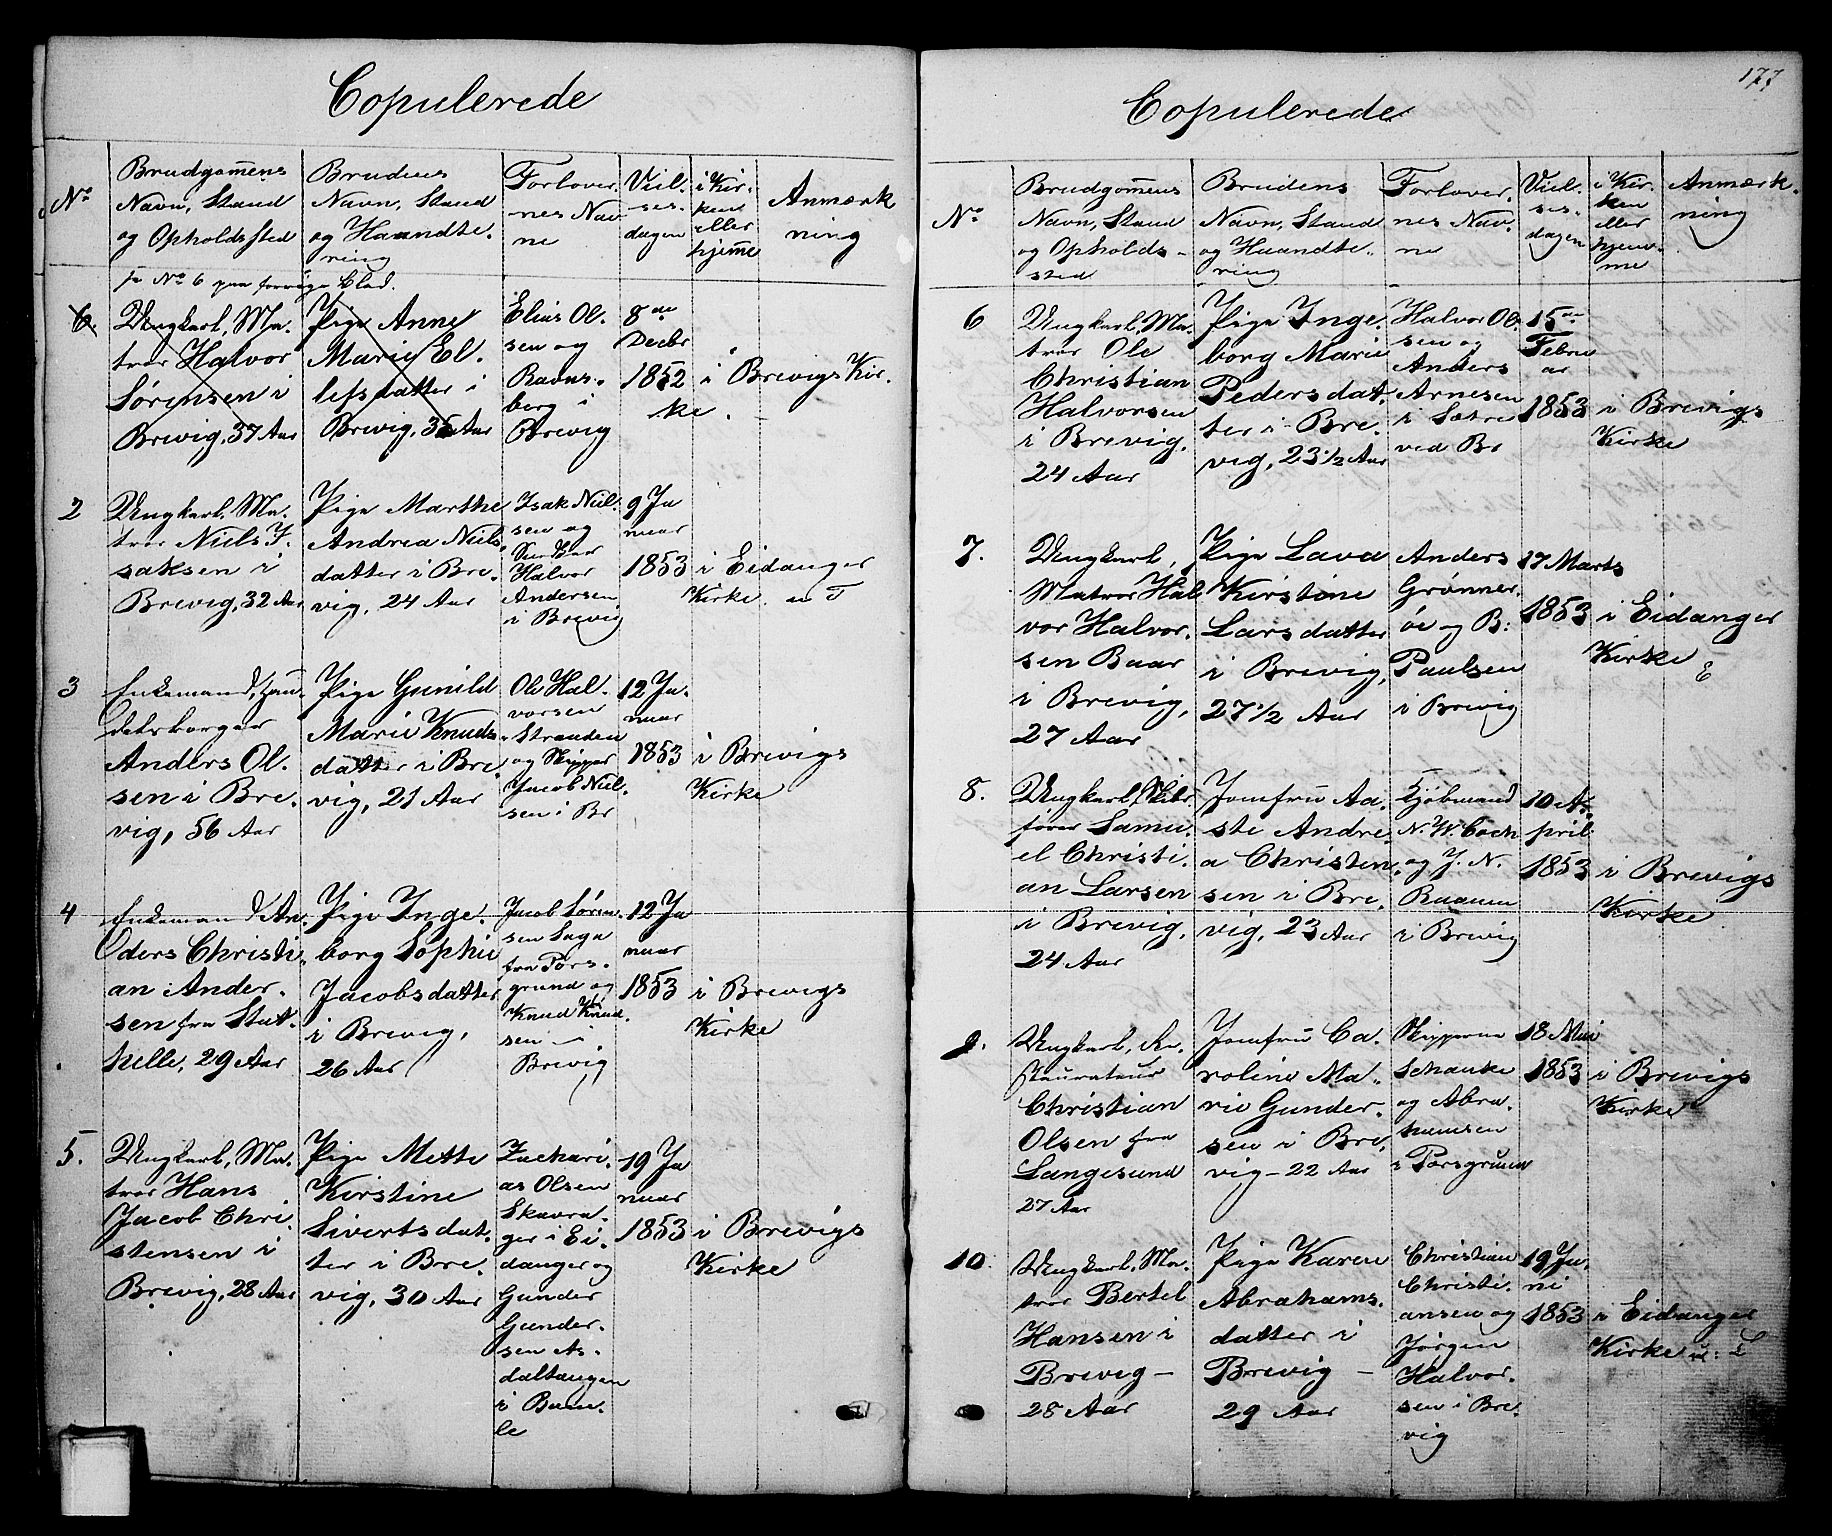 Copulerede
No
Brudgom̄ens
Navn, Stand
og OpholdsSted
Brudens
Navn, Stand
og Haandte-
ring
Forlover-
nes Nav-
ne
Viel-
ses-
dagen
i Kir-
ken
eller
hjem̄e
Anmærk
ning
No 6 paa forrige Blad.
6.
Ungkarl, Ma-
tros Halvor
Sørensen i
Brevig, 37 Aar
Pige Anne
Marie El-
lefsdatter i
Brevig, 35 Aar
Elias Ol-
sen og
Ravns-
berg i
Brevig
8de
Decbr
1852
i Brevigs Kir-
ke.
2
Ungkarl, Ma-
tros Niels I-
saksen i
Brevig, 32 Aar
Pige Marthe
Andrea Niels-
datter i Bre-
vig, 24 Aar
Isak Niel-
sen og
Halvor
Andersen
i Brevig
9 Ja
nuar
1853
i Eidanger
Kirke.
3
Enkemand, Han-
delsborger
Anders Ol-
sen i Bre-
vig, 56 Aar
Pige Gunild
Marie Knuds
datter i Bre-
vig, 21 Aar
Ole Hal-
vorsen
Stranden
og Skipper
Jacob Niel-
sen i Br
12 Ja-
nuar
1853
i Brevigs
Kirke
4
Enkemand An-
ders Christi-
an Ander-
sen fra Stat-
helle, 29 Aar
Pige Inge-
borg Sophie
Jacobsdatter
i Brevig,
26 Aar
Jacob Søren-
sen Saga
fra Pors-
grund og
Knud Knud-
sen i
Brevig
12 Ja
nuar
1853
i Brevigs
Kirke
5.
Ungkarl, Ma-
tros Hans
Jacob Chri-
stensen i
Brevig, 28 Aar
Pige Mette
Kirstine
Sivertsdat-
ter i Bre-
vig, 30 Aar
Zachari-
as Olsen
Skavra-
ger i Ei-
danger og
Gunder
Gunder-
sen As-
daltangen
i Bam-
le
19 Ja
nuar
1853
i Brevigs
Kirke
177
Copulerede
No
Brudgom̄ens
Navn, Stand
og Opholds-
sted
Brudens
Navn, Stand
og Haandte-
ring
Forlover-
nes Nav-
ne
Viel-
ses-
dagen
i Kir-
ken
eller
hjem-
me
Anmærk-
ning
6
Ungkarl, Ma-
tros Ole
Christian
Halvorsen
i Brevig,
24 Aar
Pige Inge-
borg Marie
Pedersdat-
ter i Bre-
vig, 23 1/2 Aar
Halvor Ol-
sen og
Anders
Arnesen
i Sætre
ved Br
15de
Febru
ar
1853
i Brevigs
Kirke
7.
Ungkarl,
Matros Hal-
vor Halvor-
sen Baar
i Brevig,
27 Aar
Pige Lava
Kirstine
Larsdatter
i Brevig,
27 1/2 Aar
Anders
Grønner-
øe og B:
Paulsen
i Brevig
17 Marts
1853
i Eidanger
Kirke
8.
Ungkarl, Skibs-
fører Samu-
el Christi-
an Larsen
i Brevig,
24 Aar
Jomfru Aa-
ste Andre-
a Christen-
sen i Bre-
vig, 23 Aar
Kjøbmand
N. W. Coch
og J. N.
i Brevig
10 A-
pril
1853
i Brevigs
Kirke
9.
Ungkarl, Re-
staurateur
Christian
Olsen fra
Langesund
27 Aar
Jomfru Ca-
roline Ma-
rie Gunder-
sen i Bre-
vig - 22 Aar
Skipperne
Schanke
og Abra-
hamsen
i Porsgrund
18 Mai
1853
i Brevigs
Kirke
10.
Ungkarl, Ma-
tros Bertel
Hansen i
Brevig -
28 Aar
Pige Karen
Abrahams-
datter i
Brevig -
29 Aar
Christian
Christi-
ansen og
Jørgen
Halvor-
sen i Bre-
vig
19 Ju-
ni
1853
i Eidanger
Kirke